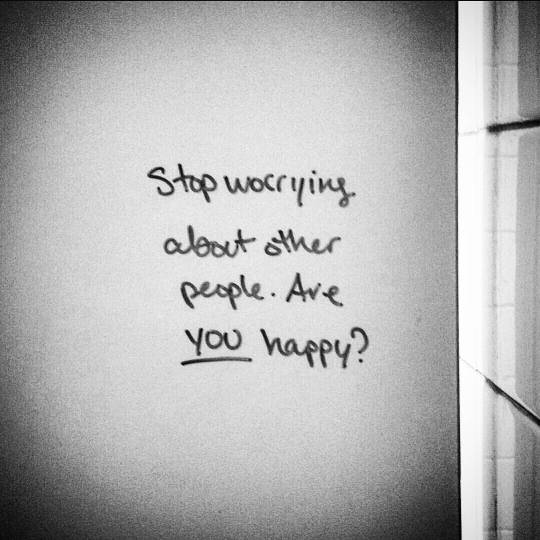 Stop worrying
about other
people. Are
YOU happy?